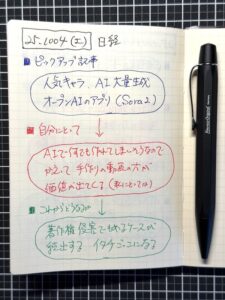 25.1004(土) 日経
■ピックアップ記事
人気キャラ、AI大量生成
オープンAIのアプリ(Sora2)
■自分にとって
AIで何でも作れてしまいそうなので
かえって手作りの動画の方が
価値が出てくる(私にとっては)
■これからどうなるか
著作権侵害でもめるケースが
続出する イタチごっこになる